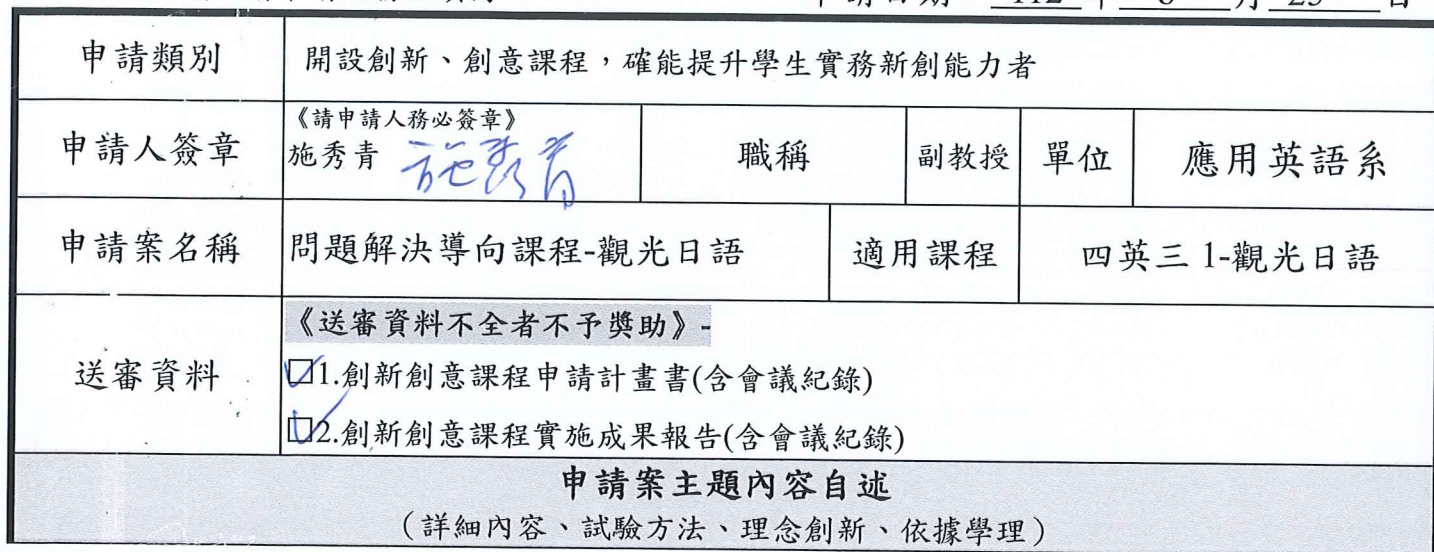 112 月 25 日
申請類別 開設創新、創意課程，確能提升學生實務新創能力者
《請申請人務必簽章》
申請人簽章 施秀青 施秀青 職稱 副教授 單位 應用英語系
申請案名稱 問題解決導向課程-觀光日語 適用課程 四英三1-觀光日語
《送審資料不全者不予獎助》-
送審資料 ☑1.創新創意課程申請計畫書(含會議紀錄)
☑2.創新創意課程實施成果報告(含會議紀錄)
申請案主題內容自述
（詳細內容、試驗方法、理念創新、依據學理）